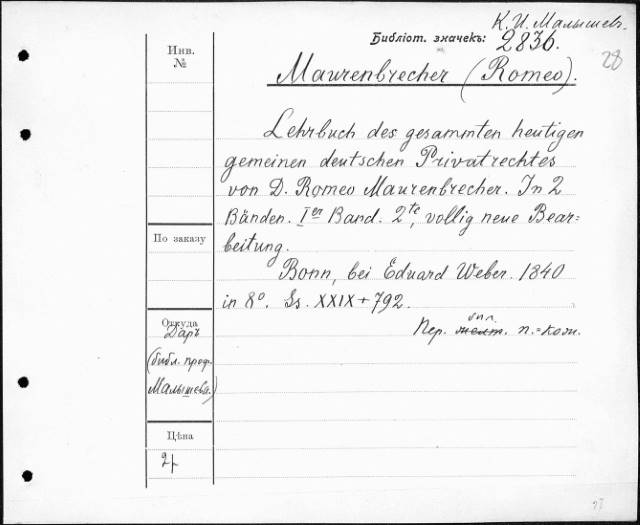 К. И. Малышевъ.
Библіот. значекъ: 2836.
28
Инв.
№
Maurenbrecher (Romeo).
Lehrbuch des gesammten heutigen
gemeinen deutschen Privatrechtes
von D. Romeo Maurenbrecher. In 2
Bänden. Ier Band. 2te, vollig neue Bear=
beitung.
По заказу
Bonn, bei Eduard Weber. 1840
in 8°. Ss. XXIX + 792.
Пер. п.=кож.
Откуда
Даръ
(библ. проф.
Малышева.)
Цѣна
2р